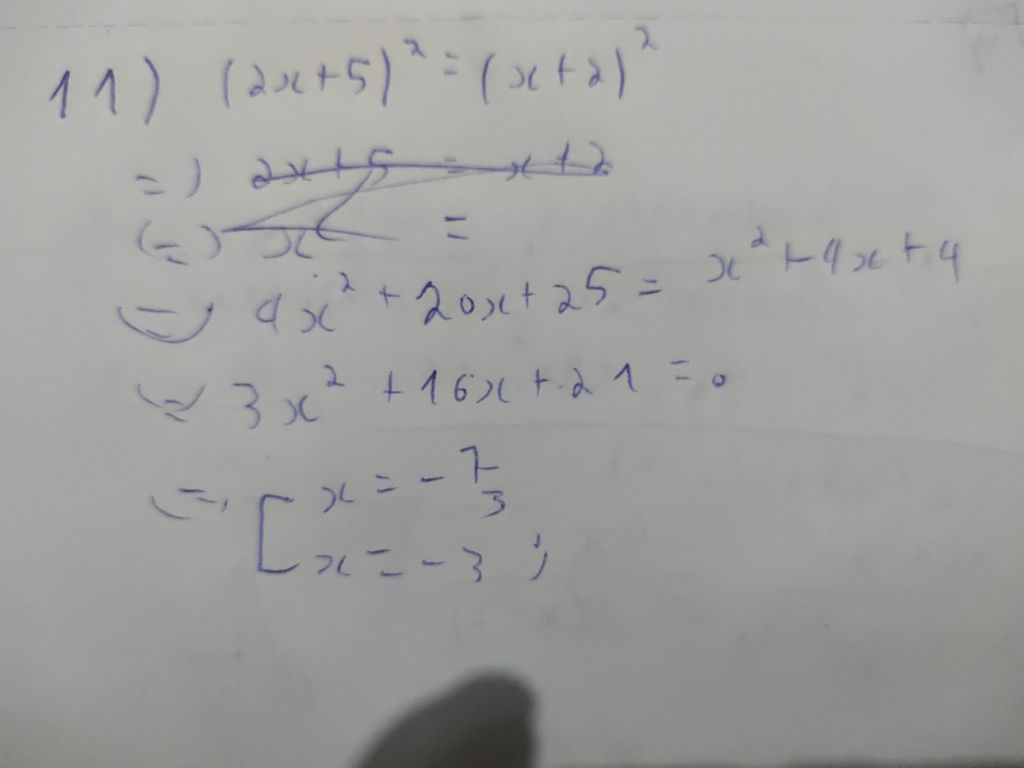 11) (2x+5)² = (x+2)²
=) 2x+5 = x+2
(=) x =
(=) 4x² + 20x + 25 = x² + 4x + 4
(=) 3x² + 16x + 21 = 0
(=) [ x = -7/3
x = -3 ;